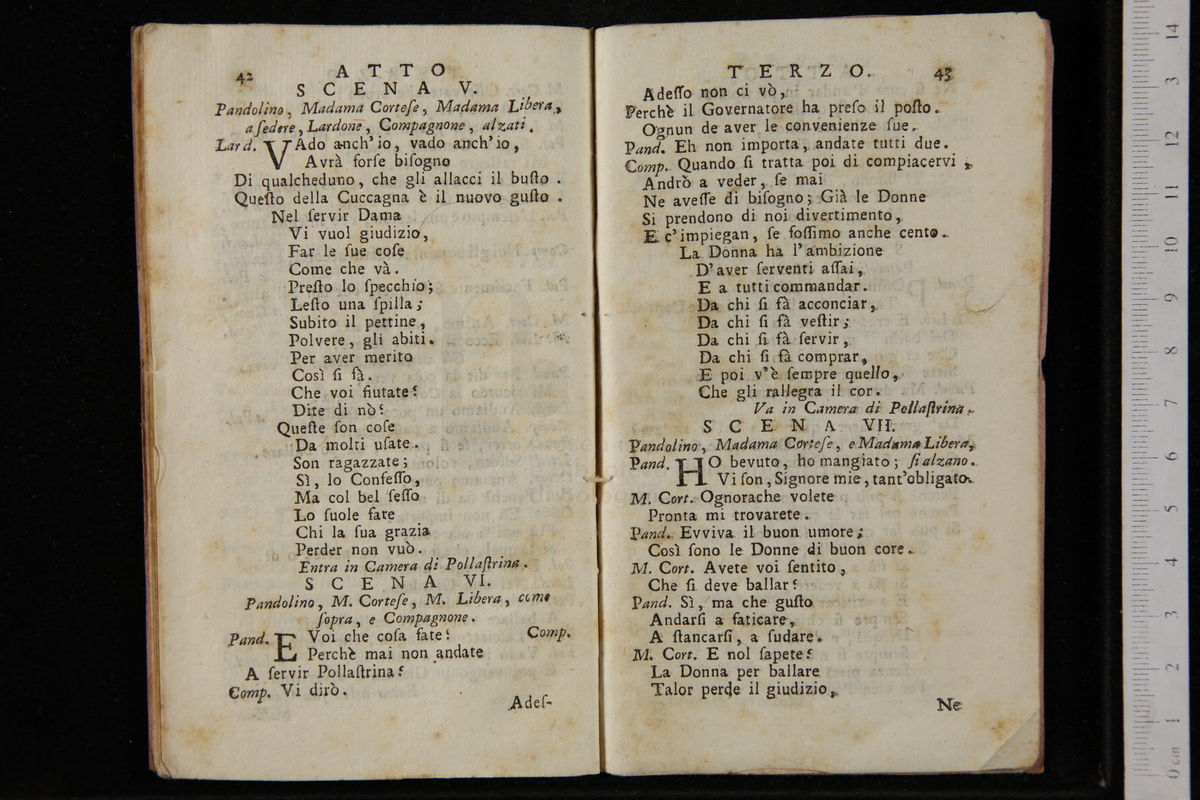 42 ATTO
SCENA V.
Pandolino, Madama Corteſe, Madama Libera,
a ſedere, Lardone, Compagnone, alzati.
Lard. VAdo anch'io, vado anch'io,
Avrà forſe biſogno
Di qualcheduno, che gli allacci il buſto.
Queſto della Cuccagna è il nuovo guſto.
Nel ſervir Dama
Vi vuol giudizio,
Far le ſue coſe
Come che và.
Preſto lo ſpecchio;
Leſto una ſpilla;
Subito il pettine,
Polvere, gli abiti.
Per aver merito
Così ſi fà.
Che voi fiutate?
Dite di nò?
Queſte ſon coſe
Da molti uſate.
Son ragazzate;
Sì, lo Confeſſo,
Ma col bel ſeſſo
Lo ſuole fare
Chi la ſua grazia
Perder non vuò.
Entra in Camera di Pollaſtrina.
SCENA VI.
Pandolino, M. Corteſe, M. Libera, come
ſopra, e Compagnone.
Pand. E Voi che coſa fate? Comp.
Perchè mai non andate
A ſervir Pollaſtrina?
Comp. Vi dirò.
Adeſ-
TERZO. 43
Adeſſo non ci vò,
Perchè il Governatore ha preſo il poſto.
Ognun de aver le convenienze ſue.
Pand. Eh non importa, andate tutti due.
Comp. Quando ſi tratta poi di compiacervi,
Andrò a veder, ſe mai
Ne aveſſe di biſogno; Già le Donne
Si prendono di noi divertimento,
E c'impiegan, ſe foſſimo anche cento.
La Donna ha l'ambizione
D'aver ſerventi aſſai,
E a tutti commandar.
Da chi ſi fà acconciar,
Da chi ſi fà veſtir;
Da chi ſi fà ſervir,
Da chi ſi fà comprar,
E poi v'è ſempre quello,
Che gli rallegra il cor.
Va in Camera di Pollaſtrina.
SCENA VII.
Pandolino, Madama Corteſe, e Madama Libera,
Pand. HO bevuto, ho mangiato; ſi alzano.
Vi ſon, Signore mie, tant'obligato.
M. Cort. Ognorache volete
Pronta mi trovarete.
Pand. Evviva il buon umore;
Così ſono le Donne di buon core.
M. Cort. Avete voi ſentito,
Che ſi deve ballar?
Pand. Sì, ma che guſto
Andarſi a faticare,
A ſtancarſi, a ſudare.
M. Cort. E nol ſapete?
La Donna per ballare
Talor perde il giudizio,
Ne
0 cm 1 2 3 4 5 6 7 8 9 10 11 12 3 14